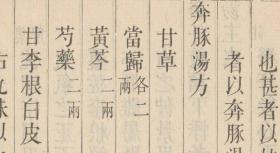 也甚者以
者以奔豚湯
奔豚湯方
甘草
當歸各二兩
黃芩二兩
芍藥二兩
甘李根白皮
右九味以